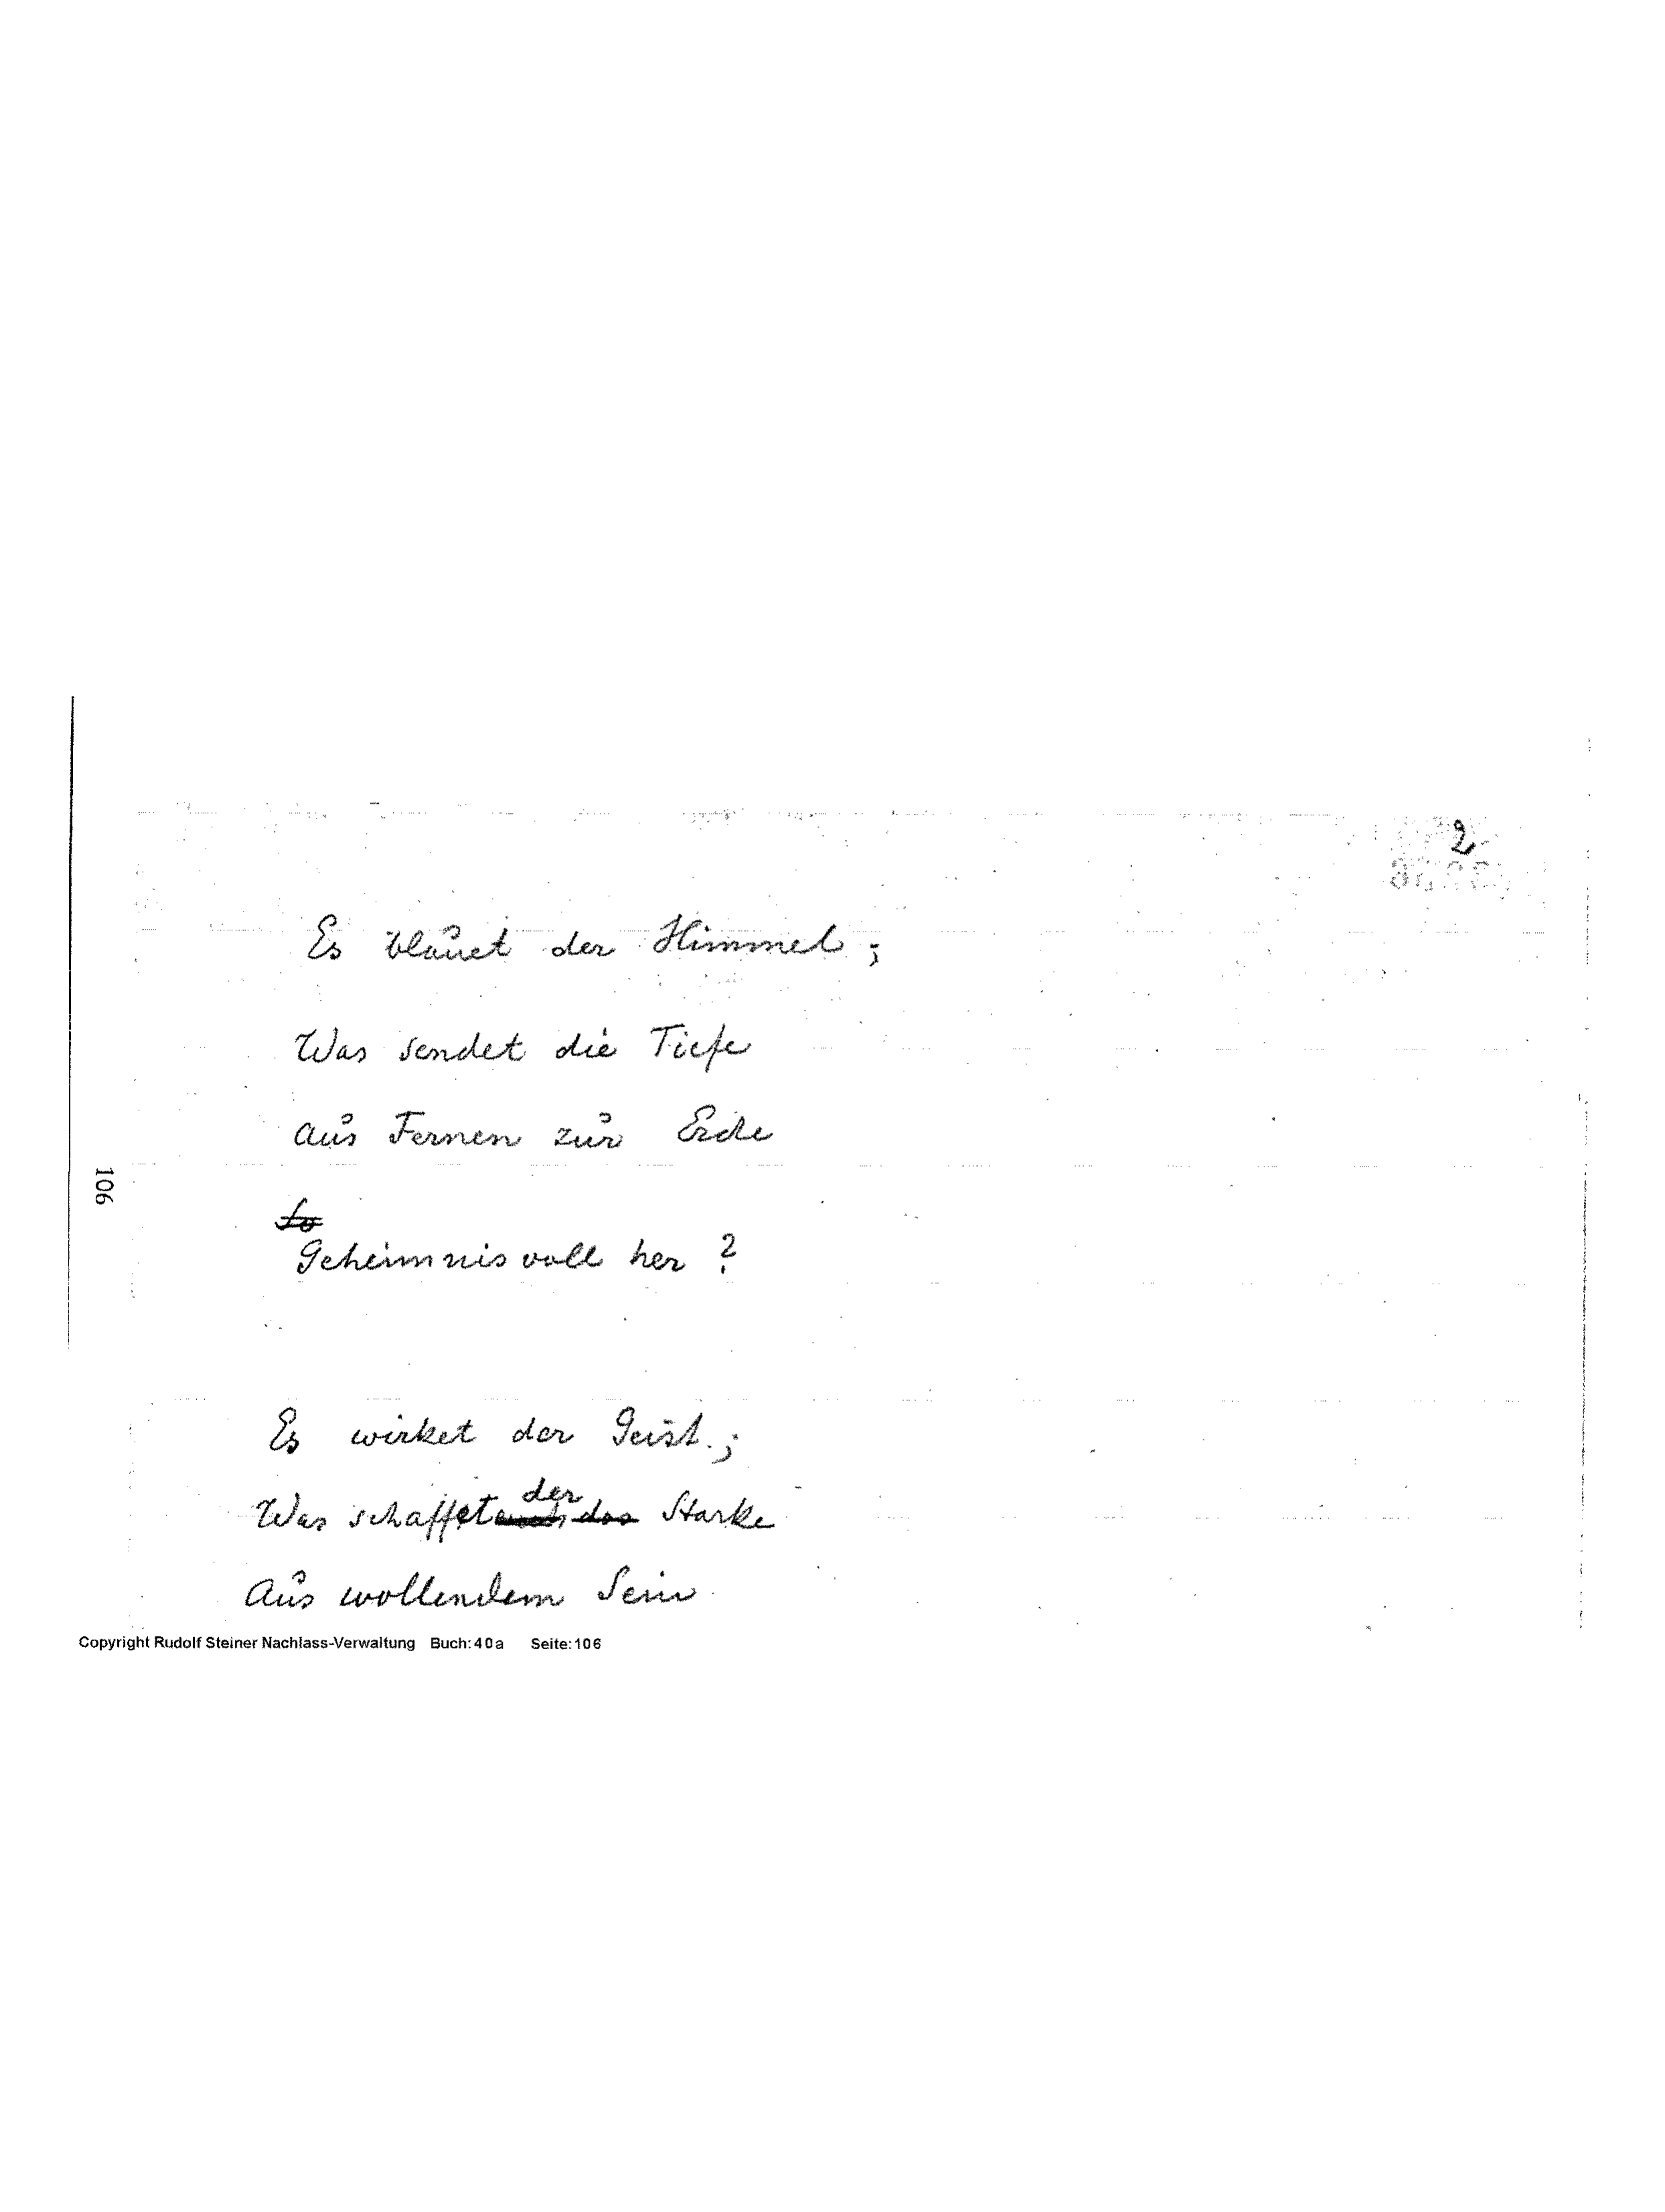 2
Es blauet der Himmel;
Was sendet die Tiefe
aus Fernen zur Erde
So
Geheimnisvoll her?
106
Es wirket der Geist.;
der
Was schaffet das Starke
Aus wollendem Sein
Copyright Rudolf Steiner Nachlass-Verwaltung Buch: 40a Seite: 106